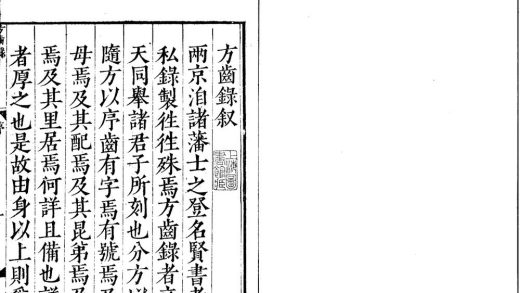 方齒錄叙
兩京洎諸藩士之登名賢書
私錄製徃徃殊焉方齒錄者
天同舉諸君子所刻也分方
隨方以序齒有字焉有號焉
母焉及其配焉及其昆弟焉
焉及其里居焉何詳且備也
者厚之也是故由身以上則
序